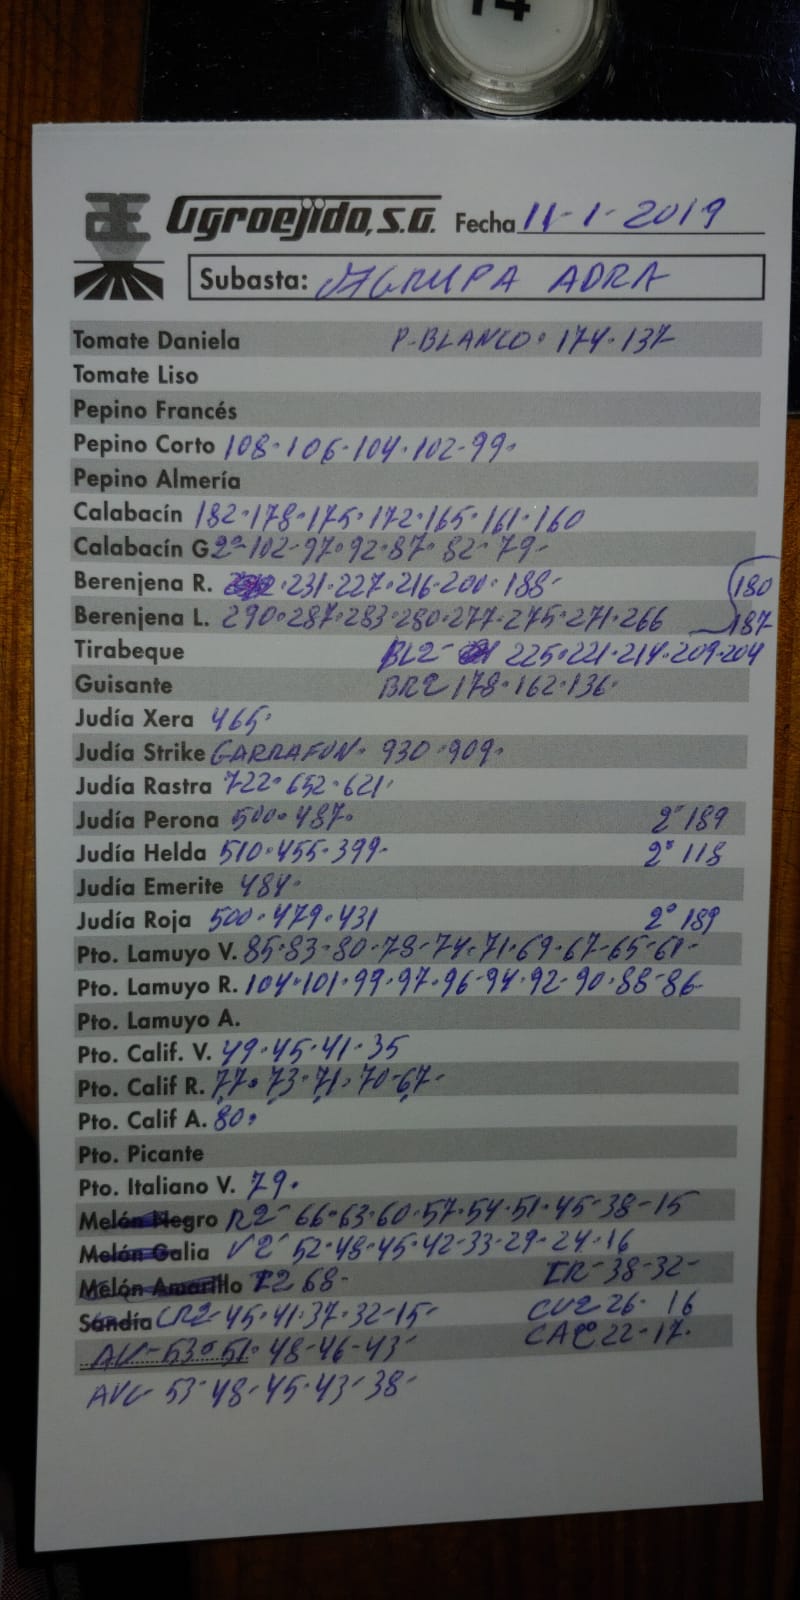 14
Agroejido, S.A. Fecha 11-1-2019
Subasta: AGRUPA ADRA
Tomate Daniela P-BLANCO. 174.137
Tomate Liso
Pepino Francés
Pepino Corto 108.106.104.102-99.
Pepino Almería
Calabacín 182.178.175.172.165.161.160
Calabacín G 2ª-102-97.92.87.82-79-
Berenjena R. 231.227.216-200.188- 180
Berenjena L. 290.287.283.280.277-275.271.266 187
Tirabeque BL2- 225.221.214.209.204
Guisante BR2 178.162.136.
Judía Xera 465.
Judía Strike GARRAFON. 930.909.
Judía Rastra 722.652.621.
Judía Perona 500.487. 2ª 189
Judía Helda 510.455.399. 2ª 118
Judía Emerite 484.
Judía Roja 500.479.431 2ª 189
Pto. Lamuyo V. 85.83-80.78-74.71.69.67-65-61-
Pto. Lamuyo R. 104.101.99.97.96-94-92-90.88-86-
Pto. Lamuyo A.
Pto. Calif. V. 49.45.41.35
Pto. Calif R. 77.73.71.70-67-
Pto. Calif A. 80.
Pto. Picante
Pto. Italiano V. 79.
Melón Negro R2- 66.63.60.57.54.51.45-38-15
Melón Galia V2- 52-48-45-42-33-29-24-16
Melón Amarillo I2 68- IR-38-32-
Sandía CR2-45.41.37-32-15- CV2 26. 16
AV-53.51.48-46-43- CA2 22-17.
AVC 53-48-45-43-38-